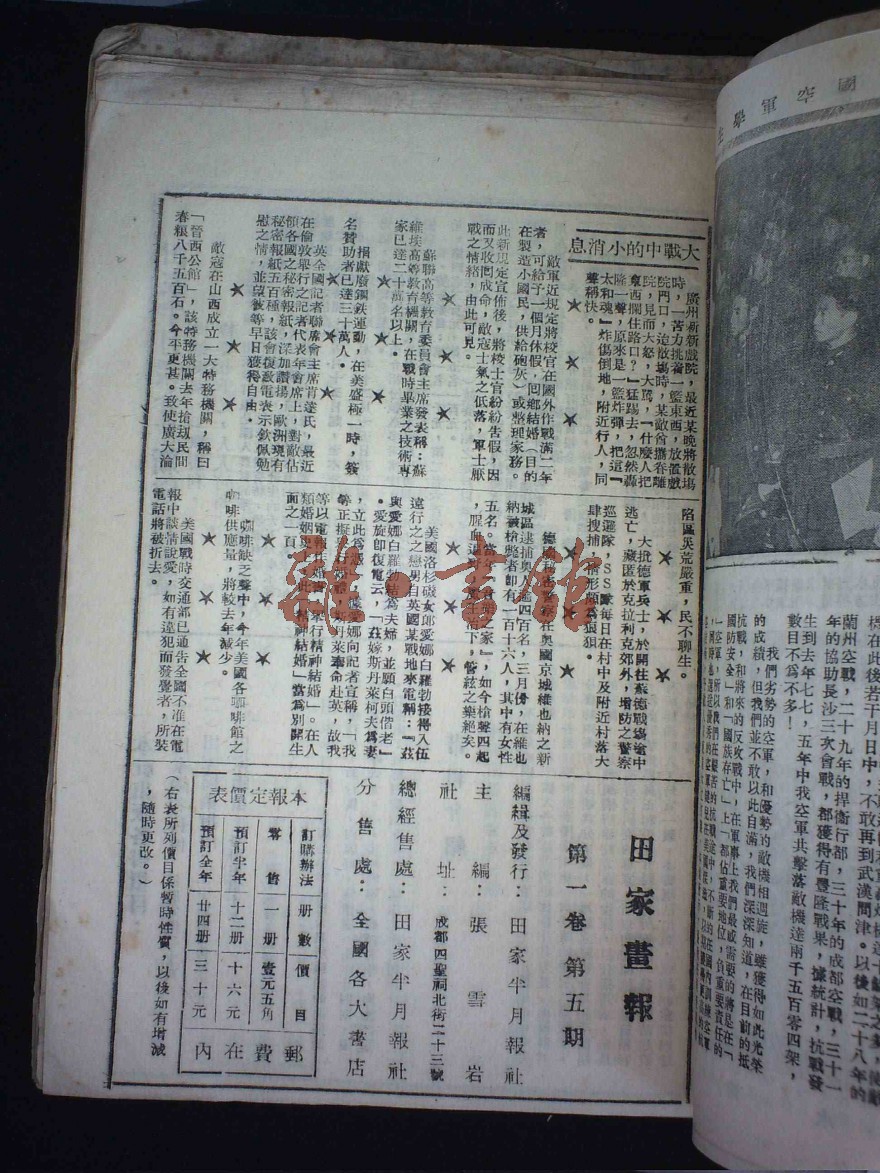 大戰中的小消息
廣州新新戲院,最近某晚將散場
時,一苦力挑着一籃東西,放置戲
院門口,迨散場時,某敵酋攜眷離
院,見而大怒,大罵,「什麼人把
東西攔住路口?」猛踢去,忽然轟
隆一聲,原來是一籃炸彈,把這『
太和魂』炸傷倒地,附近行人,同
聲稱快。
敵軍近規定將校官在國外作戰滿二年
者,可給予一個月休假,回鄉結婚(目的
在製造小國民,供給砲灰)或整理家務。
此新規定宣佈後,將校士官紛紛告假,因
而又收回成命,敵寇士氣之低落,軍士厭
戰之情緒,由此可見。
蘇聯高等教育委員會主席發表稱:蘇
維埃高等教育機關,在戰時畢業之技術專
家已達二十萬名以上。
捐獻廢鋼鉄運動,在美盛極一時,簽
名贊助者已達三十萬人。
英全國記者聯席會主席肯達氏,最近
在倫敦舉行之記者代表年會席上,對敵佔
領各國之秘密報紙,深加讚揚,歐洲現有
秘密報紙五百種,該會復致電表示欽佩勉
慰之情,並望彼等早日獲得自由。
敵寇在山西成立一大特務機關,稱曰
「晉西公館」,該特務機關去年搶刼民間
春粮八千五百石。今年更甚。致使廣大淪
陷區英荒嚴重,民不聊生。
大批德軍兵士,於開往蘇德戰場途中
逃亡,藏匿於克拉利克郊外,增防之警察
巡邏隊,SS隊每日在村中及附近村落大
肆搜捕,情形頗爲狼狽。
德國秘密警察在奧國京城維也納之新
城區逮捕奧人達四百名,三月份,在維也
納被槍斃者卽有一百十六人,其中有女性
五名。當年「音樂之家」,如今槍聲四起
,腥血遍野,管絃之樂絕矣。
美國洛杉磯女郎愛娜白羅勃接得入伍
遠行之之戀男自英國某戰地來電稱:「茲
與愛娜白羅勃結爲夫婦,並願白頭偕老」
。愛旋卽復電云,「茲嫁斯丹萊柯夫爲妻
,立此爲憑」,據愛娜向記者宣稱,「我
等以電報作婚書,舉行精神結婚」。在人
面之一頁。
咖啡缺乏聲中,今年美國各咖啡館之
咖啡供應量,將較去年減少。
美國戰時交通部已通告全國不准在電
報中談情說愛,如有違犯而發覺者,所裝
電話將被拆去。
田家畫報
第一卷第五期
編輯及發行:田家半月報社
主編:張雪岩
社址:成都四聖祠北街二十三號
總經售處:田家半月報社
分售處:全國各大書店
本報定價表
訂購辦法 册數 價目
零售 一册 壹元五角
預訂半年 十二册 十六元
預訂全年 廿四册 三十元
郵費在內
(右表所列價目係暫時性質,以後如有增減
,隨時更改。)
國空軍學生
蘭州空戰,二十九年的捍衛行都,三十年的成都空戰,三十一
年的協助長沙三次會戰,都獲得有豐隆戰果,據統計,抗戰發
生到去年七七,五年中我空軍共擊落敵機達兩千五百零四架,
數目不爲不多!
我們劣勢的空軍,和優勢的敵機相週旋,雖獲得如此光榮
的成績,但我們並不敢以此自滿,我們深深知道,在目前的抵
雜書館